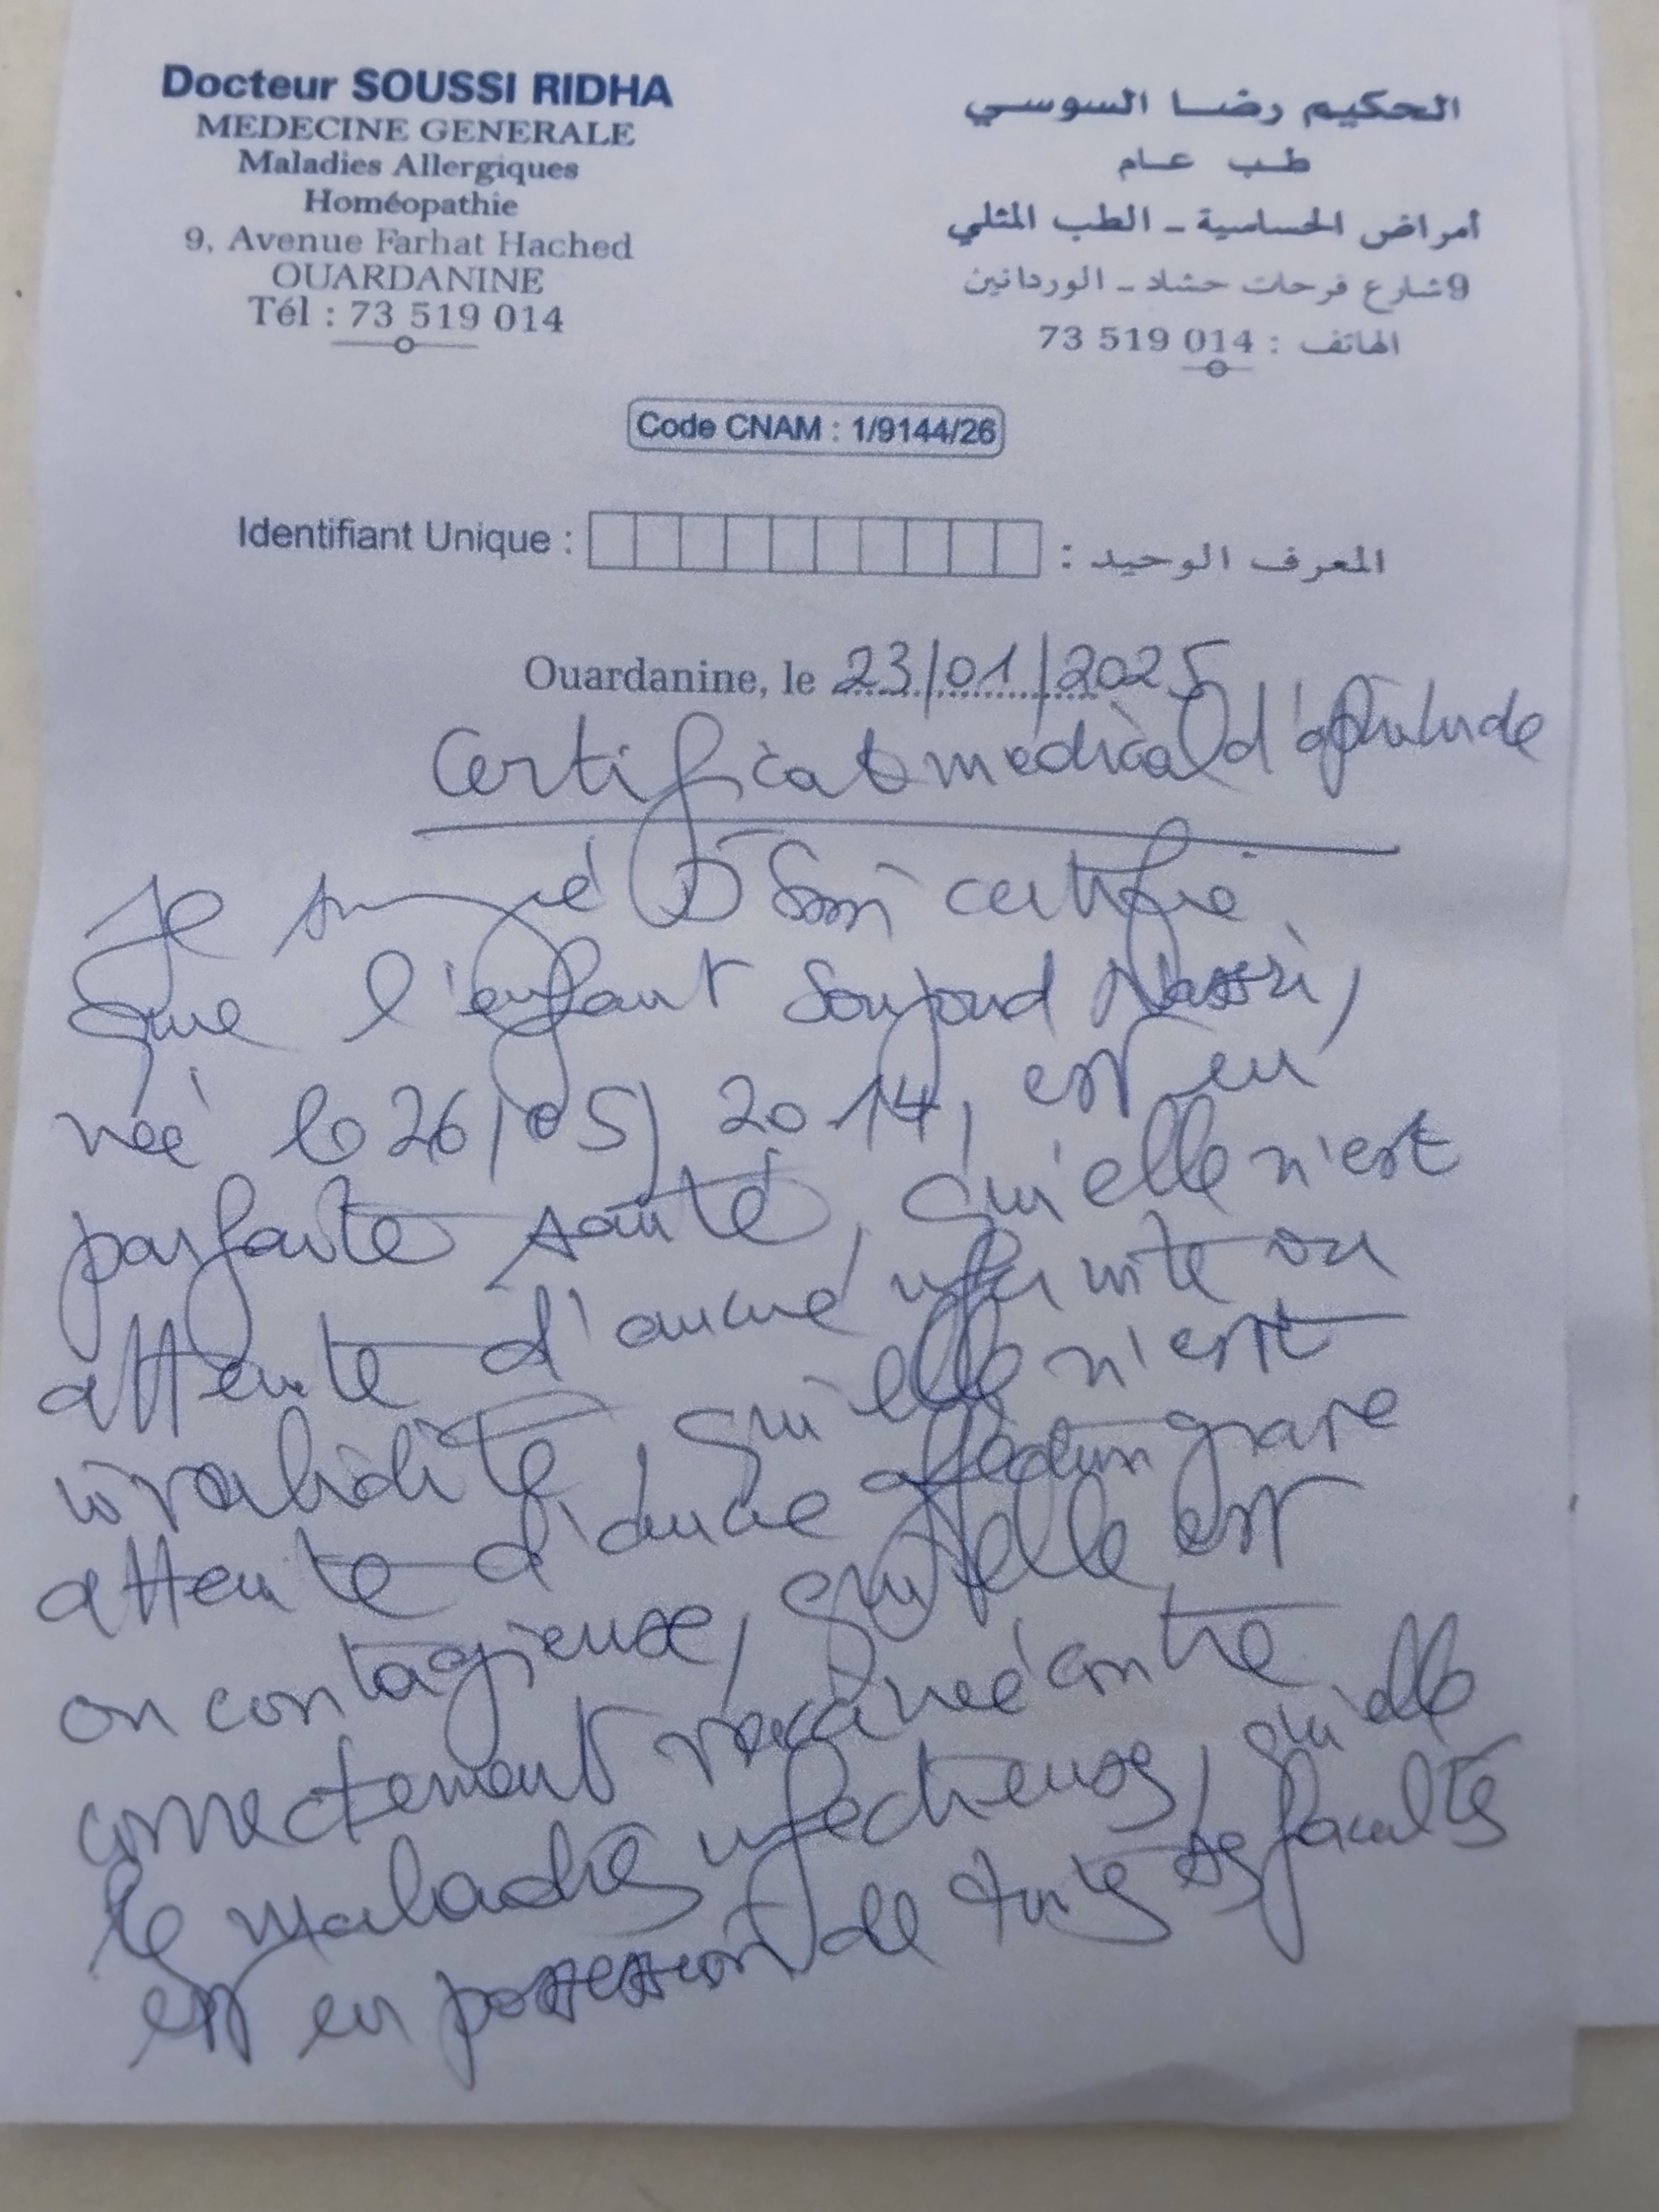 Docteur SOUSSI RIDHA
MEDECINE GENERALE
Maladies Allergiques
Homéopathie
9, Avenue Farhat Hached
OUARDANINE
Tél : 73 519 014
الحكيم رضا السوسي
طب عام
أمراض الحساسية - الطب المثلي
9 شارع فرحات حشاد - الوردانين
الهاتف : 014 519 73
Code CNAM : 1/9144/26
Identifiant Unique : المعرف الوحيد :
Ouardanine, le 23/01/2025
Certificat médical d'aptitude
Je D certifie
que l'enfant Nassri,
née le 26/05/2014, est en
parfaite santé, qu'elle n'est
atteinte d'aucune infirmité ou
invalidité, qu'elle n'est
atteinte d'aucune affection grave
ou contagieuse, qu'elle est
correctement vaccinée contre
les maladies infectieuses, qu'elle
est en possession de toutes ses facultés